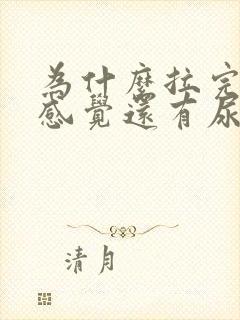 為什麼拉完
感覺還有尿
清月